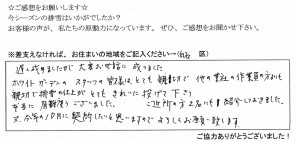 ☆ご感想をお願いします☆
今シーズンの排雪はいかがでしたか？
お客様の声が、私たちの原動力になっています。ぜひ、ご感想をお聞かせ下さい。
※差支えなければ、お住まいの地域をご記入ください→(白石 区)
遅く成りましたが 大変お世話に成りました
ホワイトガーデンの スタッフの皆様は とても 親切で 他の業社の作業員の方も
親切で 排雪の仕上が とても きれいに 投げて下さり
本当に 有難度うございました。 ご近所の方2名にも 紹介しておきました。
又、今年の10月に 契約したいと思いますので よろしくお願い致します
ご協力ありがとうございました！